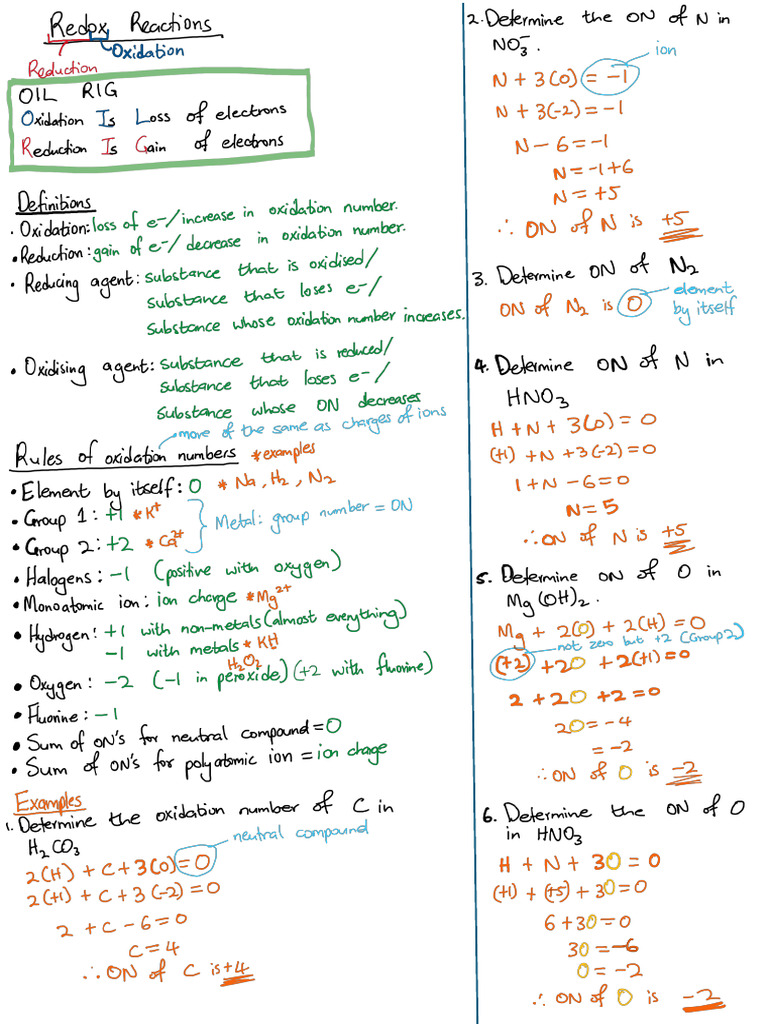 Redox Reactions
Oxidation
Reduction
OIL RIG
Oxidation Is Loss of electrons
Reduction Is Gain of electrons
Definitions
• Oxidation: loss of e-/increase in oxidation number.
• Reduction: gain of e-/ decrease in oxidation number.
• Reducing agent: substance that is oxidised/
substance that loses e-/
substance whose oxidation number increases.
• Oxidising agent: substance that is reduced/
substance that loses e-/
substance whose ON decreases
more of the same as charges of ions
Rules of oxidation numbers *examples
• Element by itself: 0 * Na, H2, N2
• Group 1: +1 * K+
Metal: group number = ON
• Group 2: +2 * Ca2+
• Halogens: -1 (positive with oxygen)
• Monoatomic ion: ion charge *Mg2+
• Hydrogen: +1 with non-metals (almost everything)
-1 with metals * KH
H2O2
• Oxygen: -2 (-1 in peroxide) (+2 with fluorine)
• Fluorine: -1
• Sum of ON's for neutral compound = 0
• Sum of ON's for polyatomic ion = ion charge
Examples
1. Determine the oxidation number of C in
H2CO3
neutral compound
2(H) + C + 3(O) = 0
2(+1) + C + 3(-2) = 0
2 + C - 6 = 0
C = 4
∴ ON of C is +4
2. Determine the ON of N in
NO3-.
ion
N + 3(O) = -1
N + 3(-2) = -1
N - 6 = -1
N = -1 + 6
N = +5
∴ ON of N is +5
3. Determine ON of N2
ON of N2 is 0
element
by itself
4. Determine ON of N in
HNO3
H + N + 3(O) = 0
(+1) + N + 3(-2) = 0
1 + N - 6 = 0
N = 5
∴ ON of N is +5
5. Determine ON of O in
Mg(OH)2.
Mg + 2(O) + 2(H) = 0
not zero but +2 (Group 2)
(+2) + 2O + 2(+1) = 0
2 + 2O + 2 = 0
2O = -4
= -2
∴ ON of O is -2
6. Determine the ON of O
in HNO3
H + N + 3O = 0
(+1) + (+5) + 3O = 0
6 + 3O = 0
3O = -6
O = -2
∴ ON of O is -2